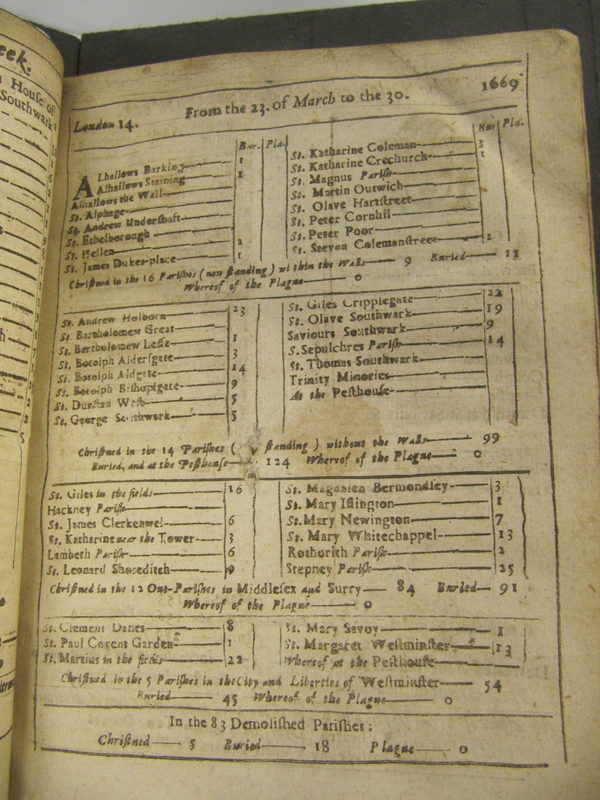 eek.
House of
Southwark
London 14. From the 23. of March to the 30. 1669
Bur. Pla.
Alhallows Barking 1
Alhallows Staining 1
Alhallows the Wall
St. Alphage
St. Andrew Undershaft
St. Ethelborough
St. Hellen 2
St. James Dukes-place 1
Bur Pla.
St. Katharine Coleman 3
St. Katharine Creechurch 1
St. Magnus Parish
St. Martin Outwich
St. Olave Hartstreet
St. Peter Cornhil
St. Peter Poor
St. Steven Colemanstreet 1
Christned in the 16 Parishes (now standing) within the Walls 9 Buried
Whereof of the Plague 0
St. Andrew Holborn 23
St. Bartholomew Great
St. Bartholomew Lesse 1
St. Botolph Aldersgate 3
St. Botolph Aldgate 14
St. Botolph Bishopsgate 9
St. Dunstan West 5
St. George Southwark 5
St. Giles Cripplegate 22
St. Olave Southwark 19
Saviours Southwark 9
S. Sepulchres Parish 14
St. Thomas Southwark
Trinity Minories
At the Pesthouse
Christned in the 14 Parishes ( standing ) without the Walls 99
Buried, and at the Pesthouse 124 Whereof of the Plague 0
St. Giles in the fields 16
Hackney Parish
St. James Clerkenwel 6
St. Katharine near the Tower 3
Lambeth Parish 6
St. Leonard Shoreditch 9
St. Magdalen Bermondsey 3
St. Mary Islington 1
St. Mary Newington 7
St. Mary Whitechappel 13
Rothorith Parish 2
Stepney Parish 25
Christned in the 12 Out-Parishes in Middlesex and Surry 84 Buried 91
Whereof of the Plague 0
St. Clement Danes 8
St. Paul Covent Garden 1
St. Martins in the fields 22
St. Mary Savoy 1
St. Margaret Westminster 13
Whereof at the Pesthouse
Christned in the 5 Parishes in the City and Liberties of Westminster 54
Buried 45 Whereof of the Plague 0
In the 83 Demolished Parishes:
Christned 5 Buried 18 Plague 0